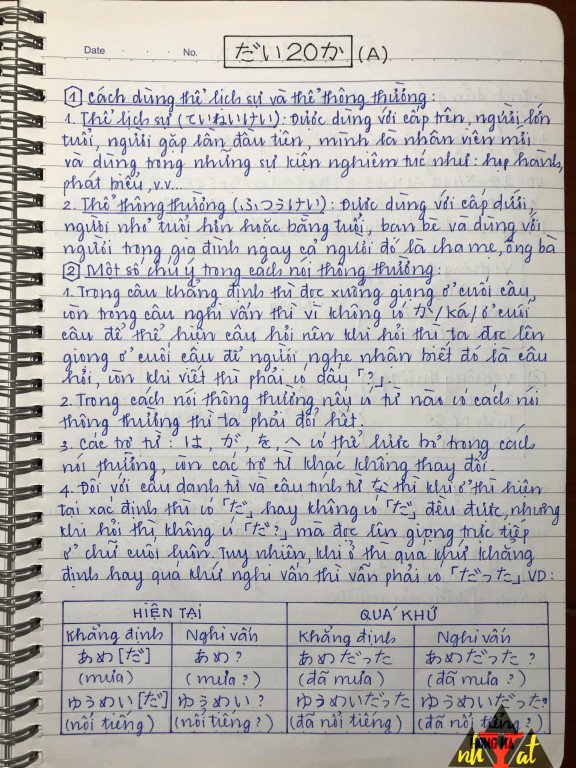 Date . . . No. だい20か (A)
1 Cách dùng thể lịch sự và thể thông thường:
1. Thể lịch sự (ていねいけい): Được dùng với cấp trên, người lớn
tuổi, người gặp lần đầu tiên, mình là nhân viên mới
và dùng trong những sự kiện nghiêm túc như: họp hành,
phát biểu, v.v...
2. Thể thông thường (ふつうけい): Được dùng với cấp dưới,
người nhỏ tuổi hơn hoặc bằng tuổi, bạn bè và dùng với
người trong gia đình ngay cả người đó là cha mẹ, ông bà
2 Một số chú ý trong cách nói thông thường:
1. Trong câu khẳng định thì đọc xuống giọng ở cuối câu,
còn trong câu nghi vấn thì vì không có か/ká/ở cuối
câu để thể hiện câu hỏi nên khi hỏi thì ta đọc lên
giọng ở cuối câu để người nghe nhận biết đó là câu
hỏi, còn khi viết thì phải có dấu「?」.
2. Trong cách nói thông thường nếu có từ nào có cách nói
thông thường thì ta phải đổi hết.
3. Các trợ từ: は, が, を, へ có thể lược bỏ trong cách
nói thường, còn các trợ từ khác không thay đổi.
4. Đối với câu danh từ và câu tính từ な thì khi ở thì hiện
tại xác định thì có「だ」hay không có「だ」đều được, nhưng
khi hỏi thì không có「だ?」mà đọc lên giọng trực tiếp
ở chữ cuối luôn. Tuy nhiên, khi ở thì quá khứ khẳng
định hay quá khứ nghi vấn thì vẫn phải có「だった」VD:
HIỆN TẠI QUÁ KHỨ
Khẳng định Nghi vấn Khẳng định Nghi vấn
あめ[だ] あめ? あめだった あめだった?
(mưa) (mưa?) (đã mưa) (đã mưa?)
ゆうめい[だ] ゆうめい? ゆうめいだった ゆうめいだった?
(nổi tiếng) (nổi tiếng?) (đã nổi tiếng) (đã nổi tiếng?)
nhYat